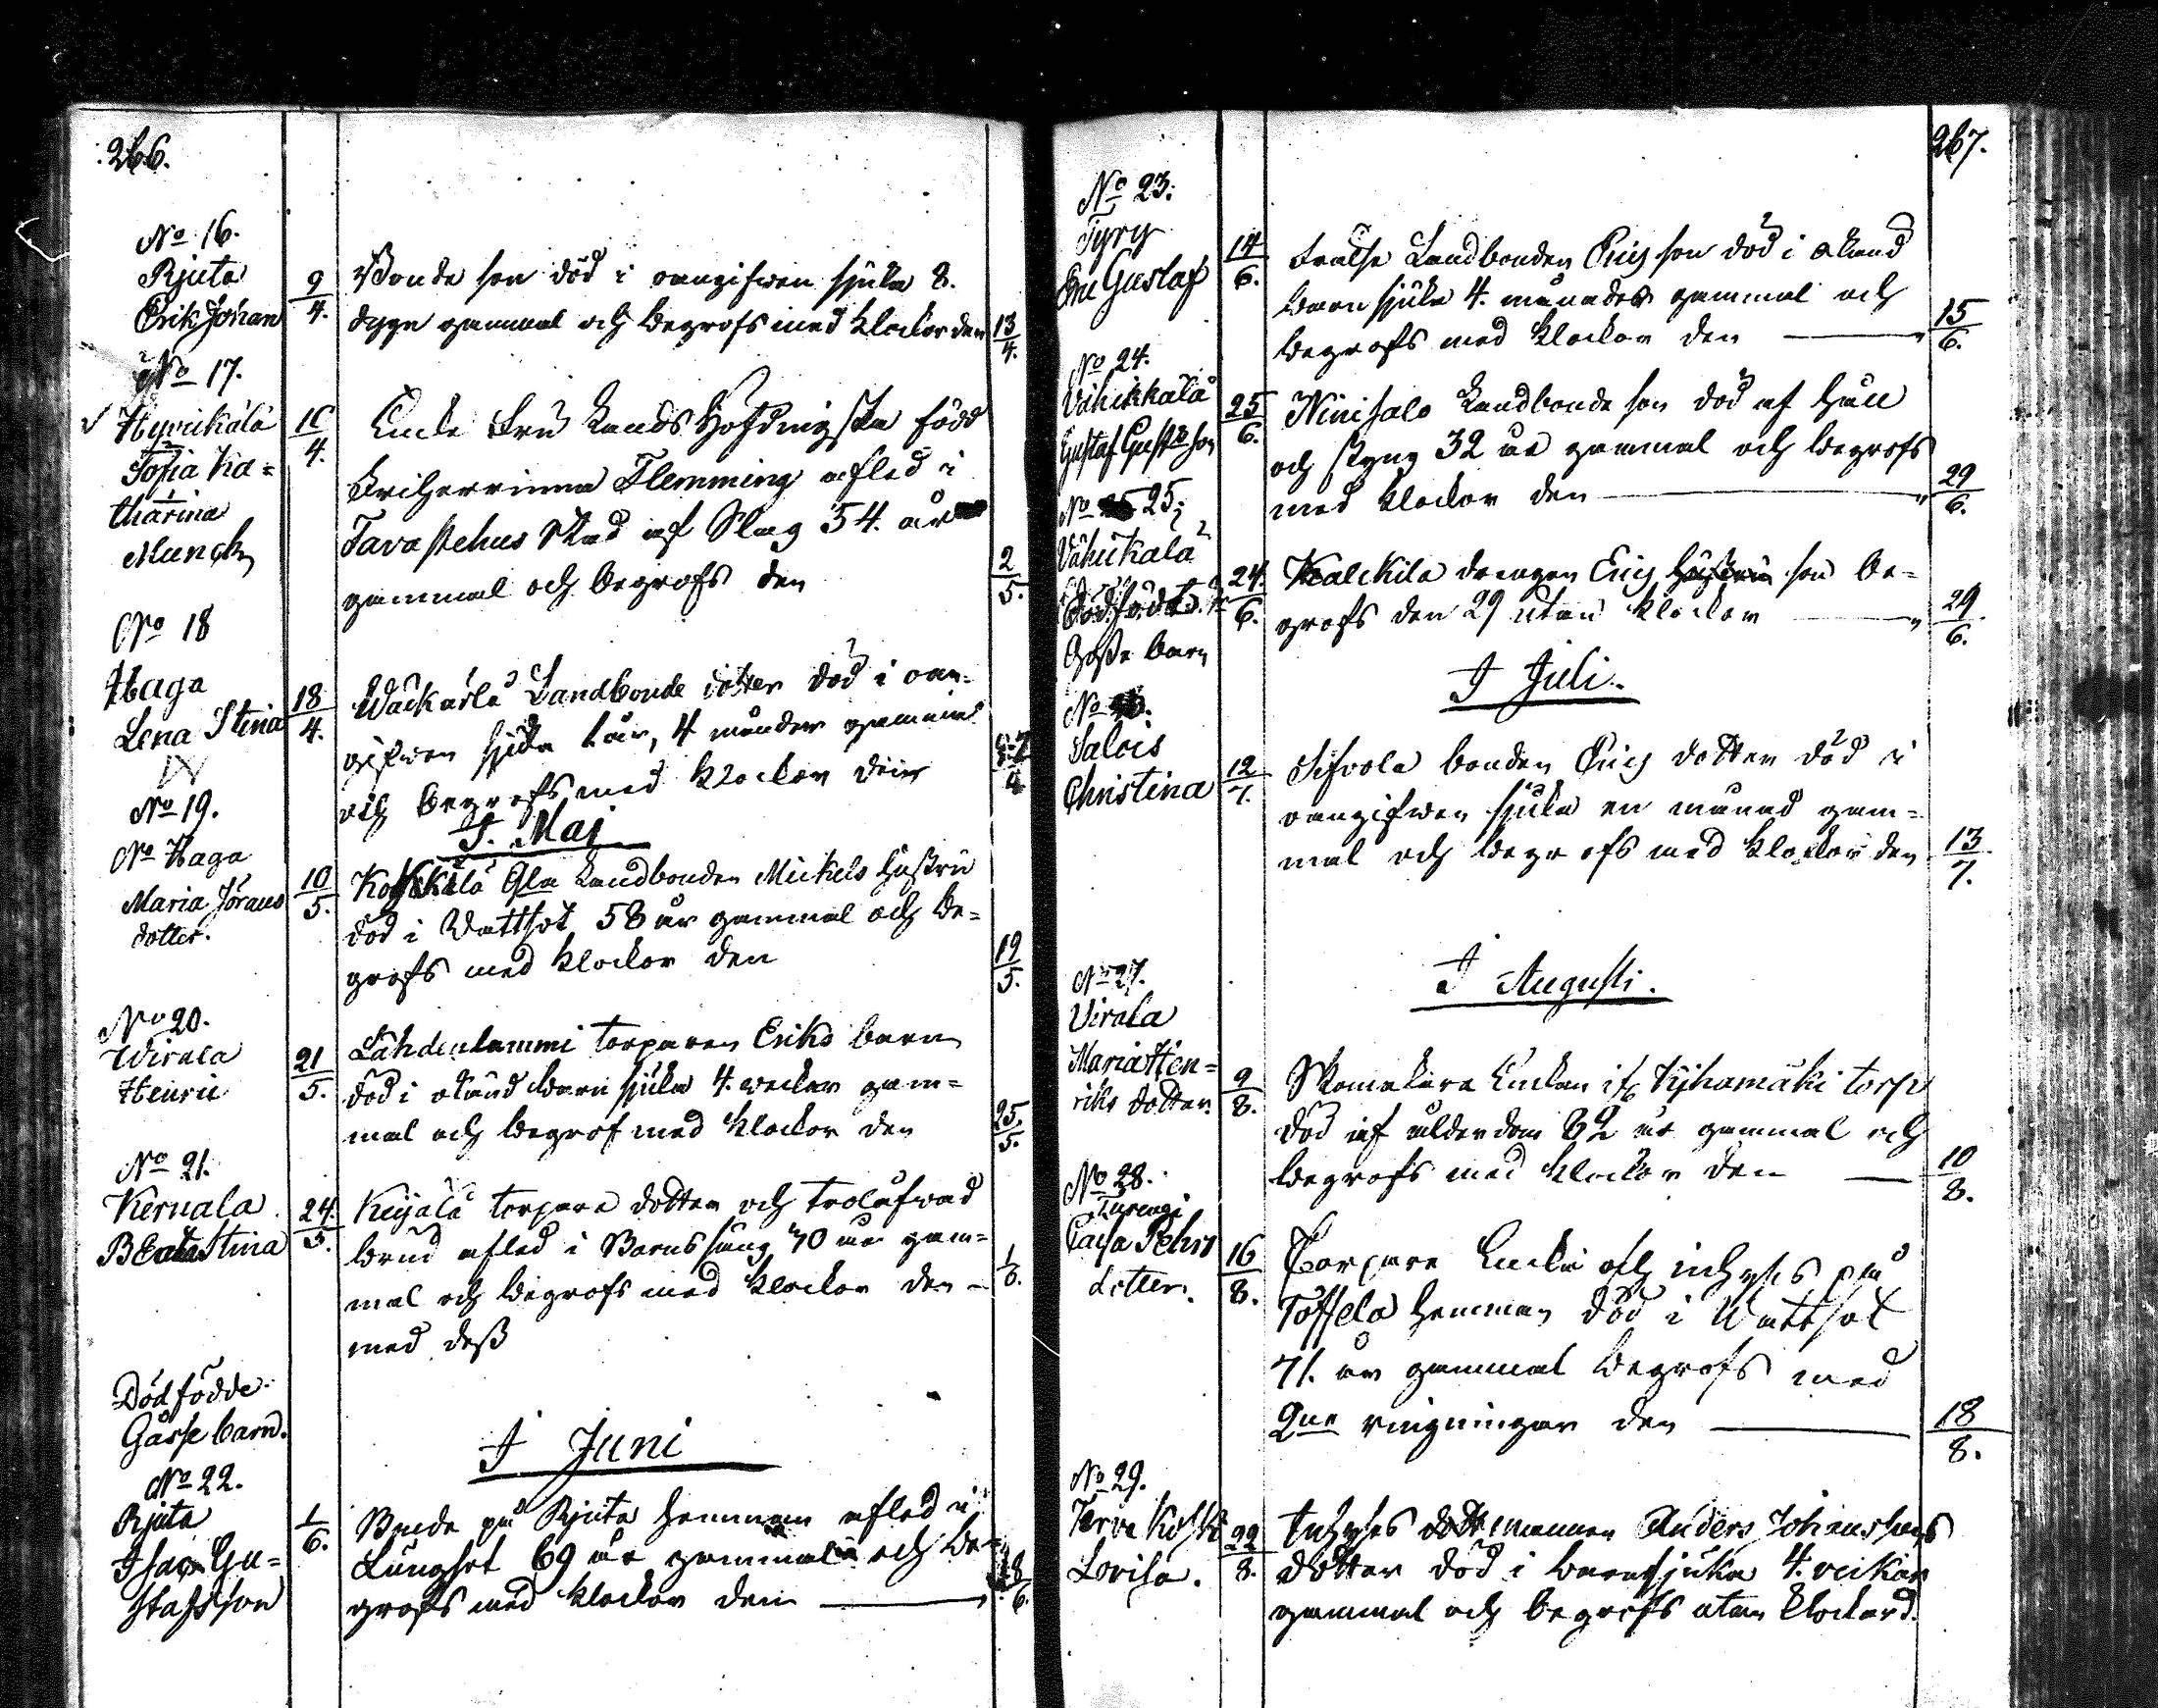 266.
No 16.
Rjuta
Erik Johan
9/4.
Bonde son död i oangifwen sjuka 8.
dygn gammal och begrofs med klockor den 13/4.
No 17.
Hyvikälä
Sofia Ka=
tharina
Munck
4.
Enke Fru Lands Höfdingska född
Friherrinna Flemming afled i
Tavastehus Stad af Slag 54. år
gammal och begrofs den 2/5.
No 18
Haga
Lena Stina
18/4.
Landbonde dotter död i oan=
gifwen sjuka 1 år, 4 månader gammal
och begrofs med klockor den
I. Maj
No 19.
No Haga
Maria Jörans
dotter.
10/5.
Landbonden Mickels hustru
död i Wattsot 58 år gammal och be=
grofs med klockor den 19/5.
No 20.
Wirala
Henric
21/5.
Lähdenlammi torparen Eriks barn
död i okänd barn sjuka 4. weckor gam=
mal och begrof med klockor den 25/5.
No 21.
Kernala
Stina
24/5.
torpare dotter och trolofwad
brud afled i Barnssäng 40 år gam=
mal och begrofs med klockor den – 1/6.
med dess
Dödfödde
Gosse barn.
I Juni
No 22.
Rjuta
Isac Gu=
stafsson
1/6.
Bonde på Rjuta hemman afled i
Lungsot 69 år gammal och be=
grofs med klockor den
267.
No 23.
Tyry
Eric Gustaf
14/6.
Frälse Landbonden Erics son död i okänd
barn sjuka 4. månader gammal och
begrofs med klockor den 15/6.
No 24.
Vähikkälä
Gustaf Gustafsson
25/6.
Ninisalo Landbonde son död af håll
och styng 32 år gammal och begrofs
med klockor den 29/6.
No 25.
Vähikälä
Dödfödt
Gosse barn
24/6.
Kalckila drengen Erics son be=
grofs den 29 utan klockor 29/6.
I Juli.
No
Salois
Christina
12/7.
Sifvola bonden Erics dotter död i
oangifwen sjuka en månad gam=
mal och begrofs med klockor den 13/7.
I Augusti.
No 27.
Virala
Maria Hen=
riks dotter.
9/8.
Skomakare Enckan ifr. torp
död af ålderdom 82 år gammal och
begrofs med klockor den 10/8.
No 28.
Turengi
Caisa Pehrs
dotter.
16/8.
Torpare Encka och inhyses på
Töffelä hemman död i Wattsot
71. år gammal begrofs med
2ne ringningar den 18/8.
No 29.
Tervakoski
Lovisa.
22/8.
Inhyses mannen Anders Johanssons
dotter död i barnsjuka 4. veckor
gammal och begrofs utan klockor d.